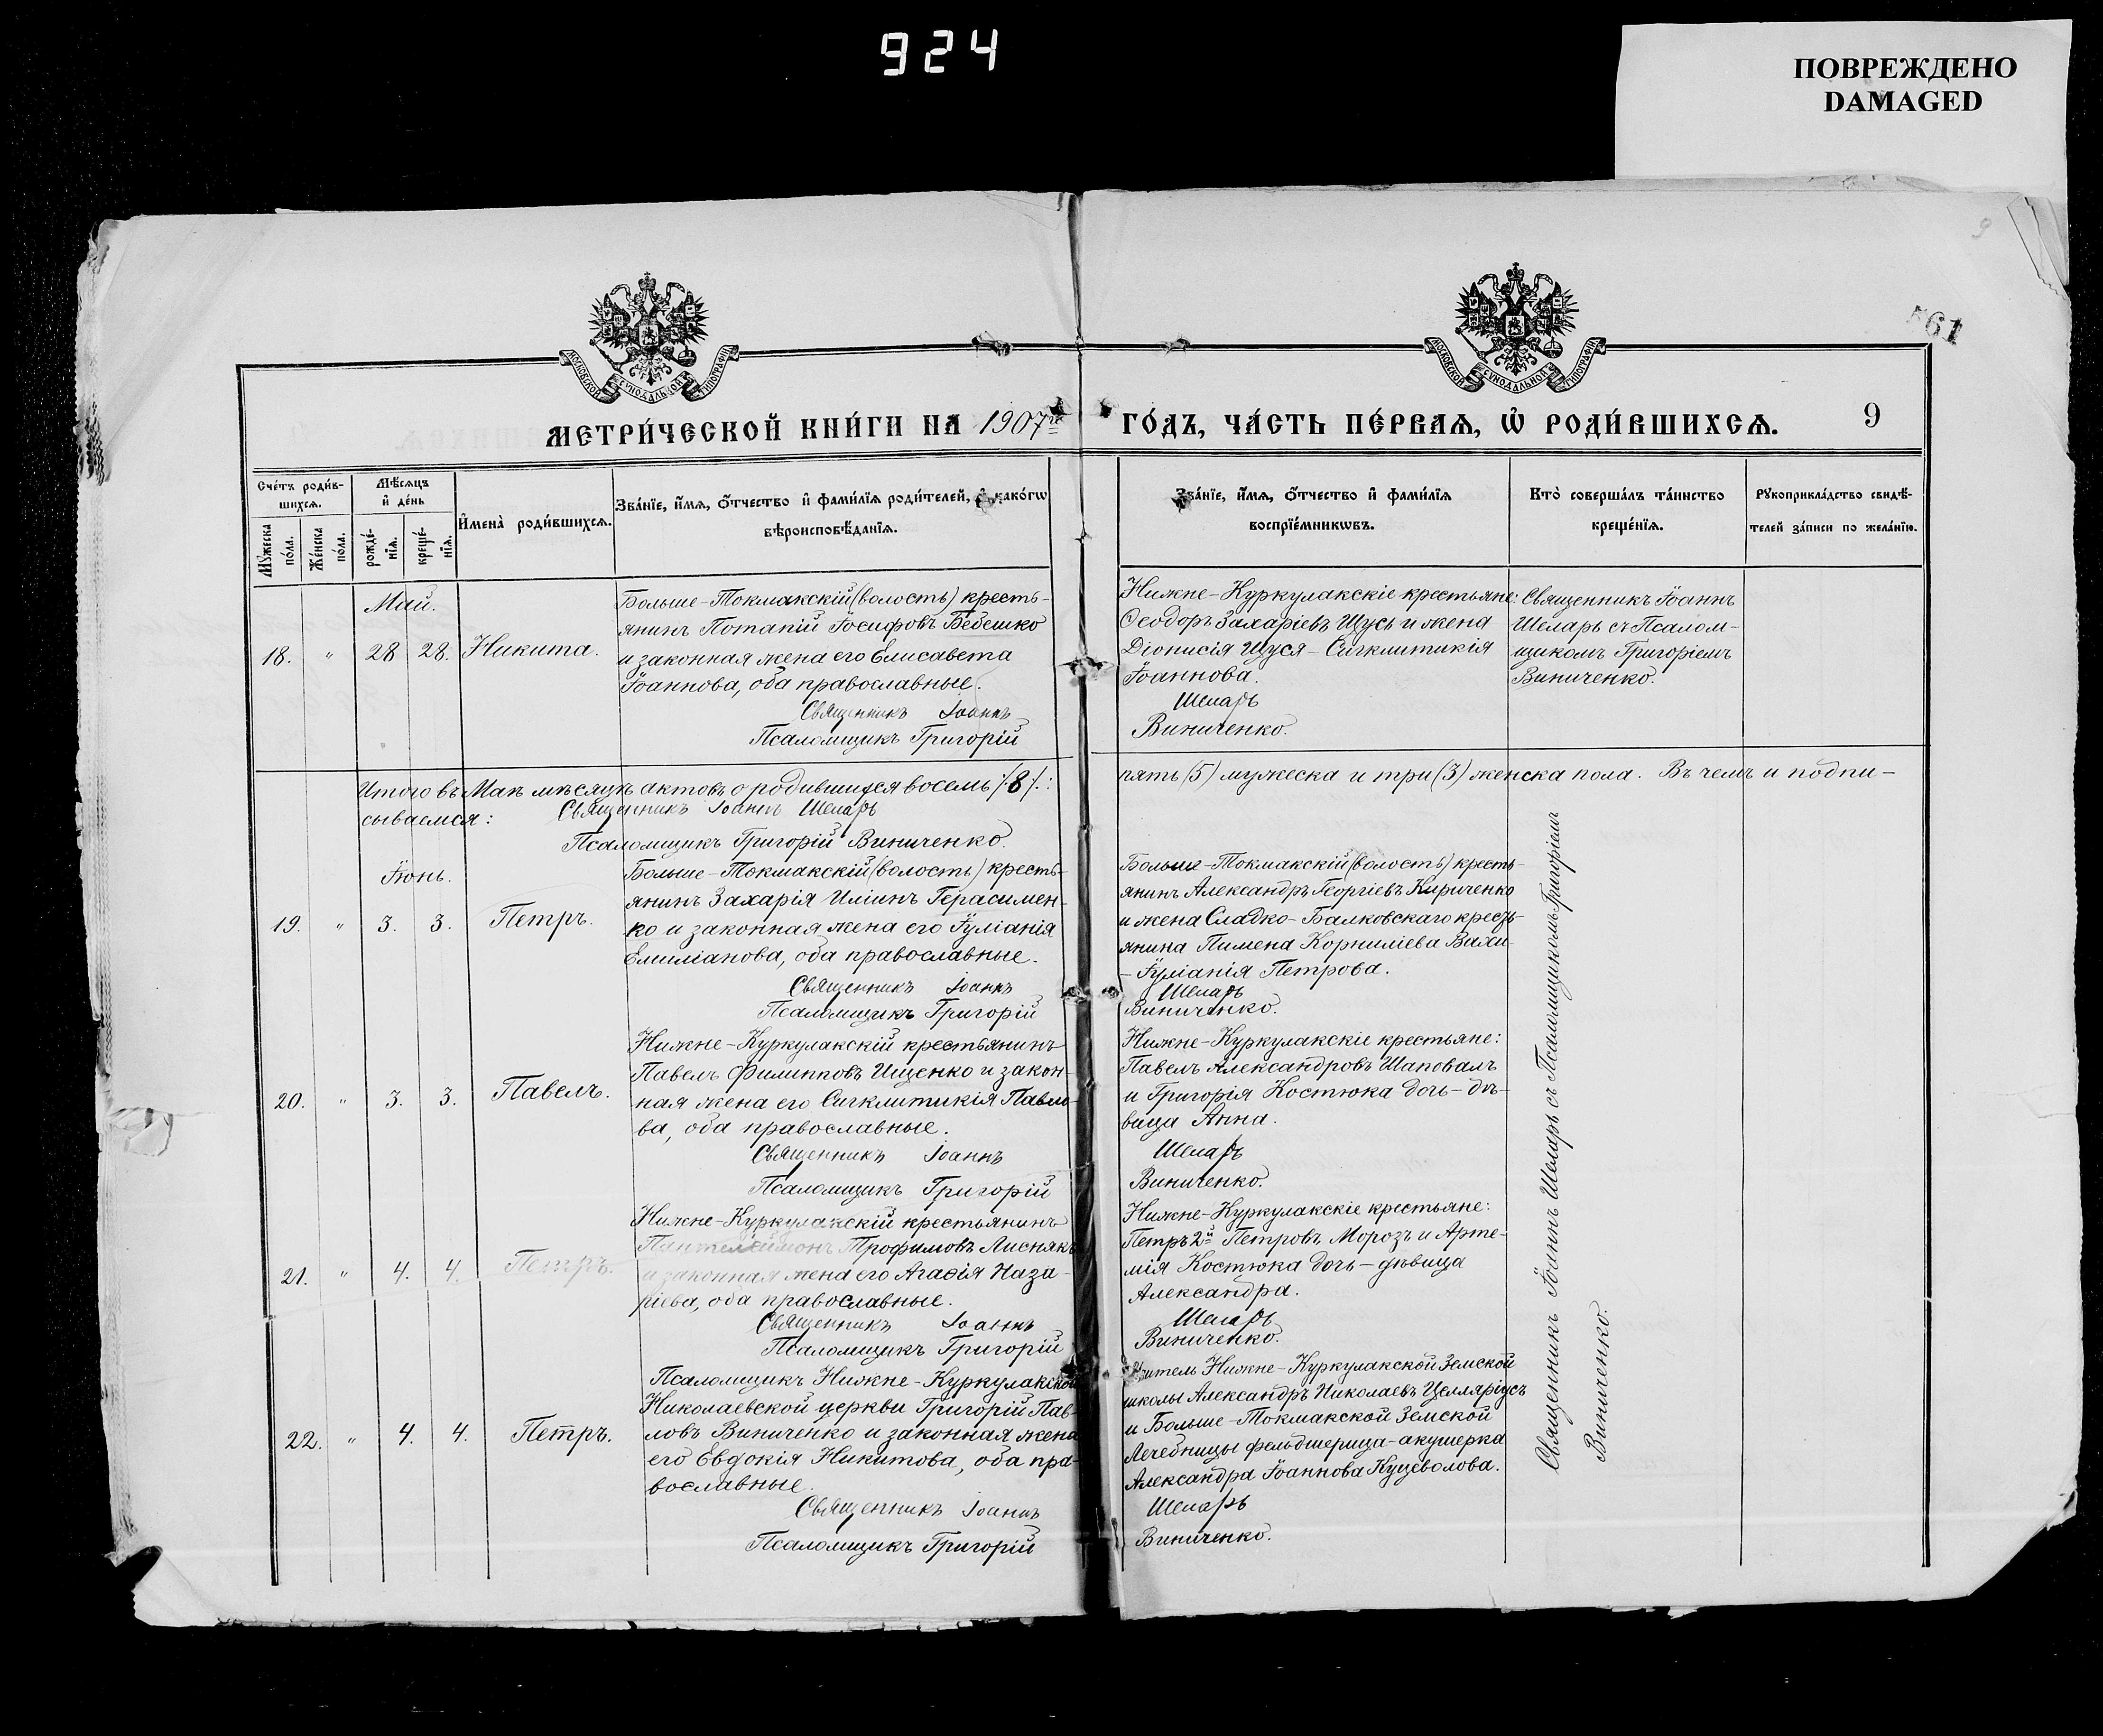 924
ПОВРЕЖДЕНО
DAMAGED
9
561
МОСКОВСКОЙ СѴНОДАЛЬНОЙ ТИПОГРАФІИ
МОСКОВСКОЙ СѴНОДАЛЬНОЙ ТИПОГРАФІИ
МЕТРИ́ЧЕСКОЙ КНИ́ГИ НА 1907й ГО́ДЪ, ЧА́СТЬ ПЕ́РВАѦ, Ѡ҆ РОДИ́ВШИХСѦ. 9
Сче́тъ роди́в-
шихсѧ.
Мꙋ́жеска
по́ла.
Же́нска
по́ла.
Мѣ́сѧцъ
и҆ де́нь
рожде́-
нїѧ.
креще́-
нїѧ.
И҆мена̀ роди́вшихсѧ.
Зва́нїе, и҆́мѧ, ѻ҆́тчество и҆ фами́лїѧ роди́телей, и҆ како́гѡ
вѣроисповѣ́данїѧ.
Зва́нїе, и҆́мѧ, ѻ҆́тчество и҆ фами́лїѧ
воспрїе́мникѡвъ.
Кто̀ соверша́лъ та́инство
креще́нїѧ.
Рꙋкоприкла́дство свидѣ́-
телей за́писи по жела́нїю.
Май.
18. " 28 28. Никита.
Больше-Токмакскій (волость) кресть-
янинъ Потапій Іосифовъ Бебешко
и законная жена его Елисавета
Іоаннова, оба православные.
Священникъ Іоаннъ
Псаломщикъ Григорій
Нижне-Куркулакскіе крестьяне:
Ѳеодоръ Захаріевъ Щусь и жена
Діонисія Щуся - Сигклитикія
Іоаннова.
Шеларь
Виниченко.
Священникъ Іоаннъ
Шеларь съ Псалом-
щикомъ Григоріемъ
Виниченко.
Итого въ Маѣ мѣсяцѣ актовъ о родившихся восемь /:8/.: пять (5) мужеска и три (3) женска пола. Въ чемъ и подпи-
сываемся: Священникъ Іоаннъ Шеларь
Псаломщикъ Григорій Виниченко.
Іюнь.
19. " 3. 3. Петръ.
Больше-Токмакскій (волость) кресть-
янинъ Захарія Иліинъ Герасимен-
ко и законная жена его Іуліанія
Емиліанова, оба православные.
Священникъ Іоаннъ
Псаломщикъ Григорій
Больше-Токмакскій (волость) кресть-
янинъ Александръ Георгіевъ Кириченко
и жена Сладко-Балковскаго кресть-
янина Пимена Корниліева Вахи-
- Іуліанія Петрова.
Шеларь
Виниченко.
20. " 3. 3. Павелъ.
Нижне-Куркулакскій крестьянинъ
Павелъ Филипповъ Ищенко и закон-
ная жена его Сигклитикія Павло-
ва, оба православные.
Священникъ Іоаннъ
Псаломщикъ Григорій
Нижне-Куркулакскіе крестьяне:
Павелъ Александровъ Шаповалъ
и Григорія Костюка дочь - дѣ-
вица Анна.
Шеларь
Виниченко.
21. " 4. 4. Петръ.
Нижне-Куркулакскій крестьянинъ
Пантелеимонъ Трофимовъ Лиснякъ
и законная жена его Агаѳія Наза-
ріева, оба православные.
Священникъ Іоаннъ
Псаломщикъ Григорій
Нижне-Куркулакскіе крестьяне:
Петръ 2й Петровъ Морозъ и Арте-
мія Костюка дочь - дѣвица
Александра.
Шеларь
Виниченко.
22. " 4. 4. Петръ.
Псаломщикъ Нижне-Куркулакской
Николаевской церкви Григорій Пав-
ловъ Виниченко и законная жена
его Евдокія Никитова, оба пра-
вославные.
Священникъ Іоаннъ
Псаломщикъ Григорій
Учитель Нижне-Куркулакской Земской
школы Александръ Николаевъ Целляріусъ
и Больше-Токмакской Земской
Лечебницы фельдшерица-акушерка
Александра Іоаннова Куцеволова.
Шеларь
Виниченко.
Священникъ Іоаннъ Шеларь съ Псаломщикомъ Григоріемъ
Виниченко.